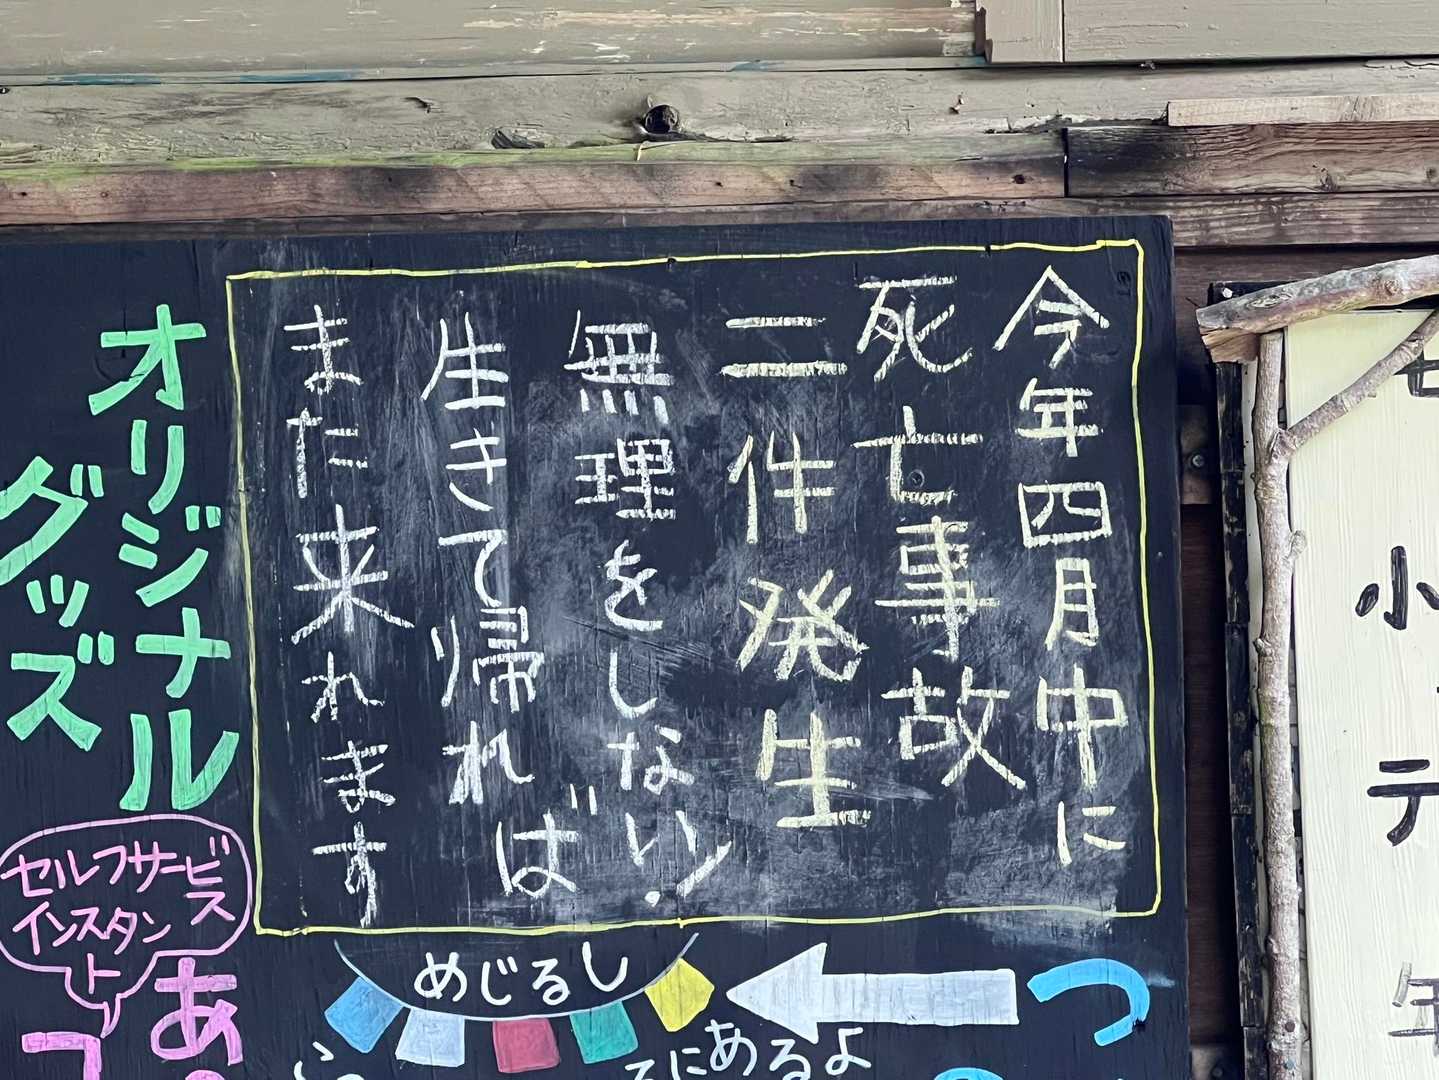 今年四月中に
死亡事故
二件発生
無理をしない!
生きて帰れば
また来れます
オリジナル
グッズ
セルフサービス
インスタント
あ
めじるし
つ
にあるよ
小
テ
年